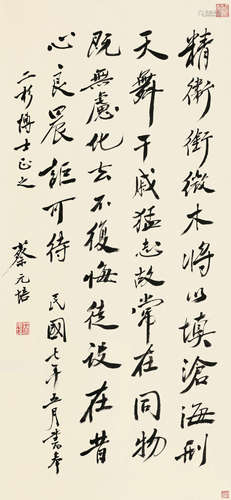 精衛銜微木將以填滄海刑
天舞干戚猛志故常在同物
既無慮化去不復悔徒設在昔
心良晨詎可待 民國七年五月書奉
二博士正之 蔡元培